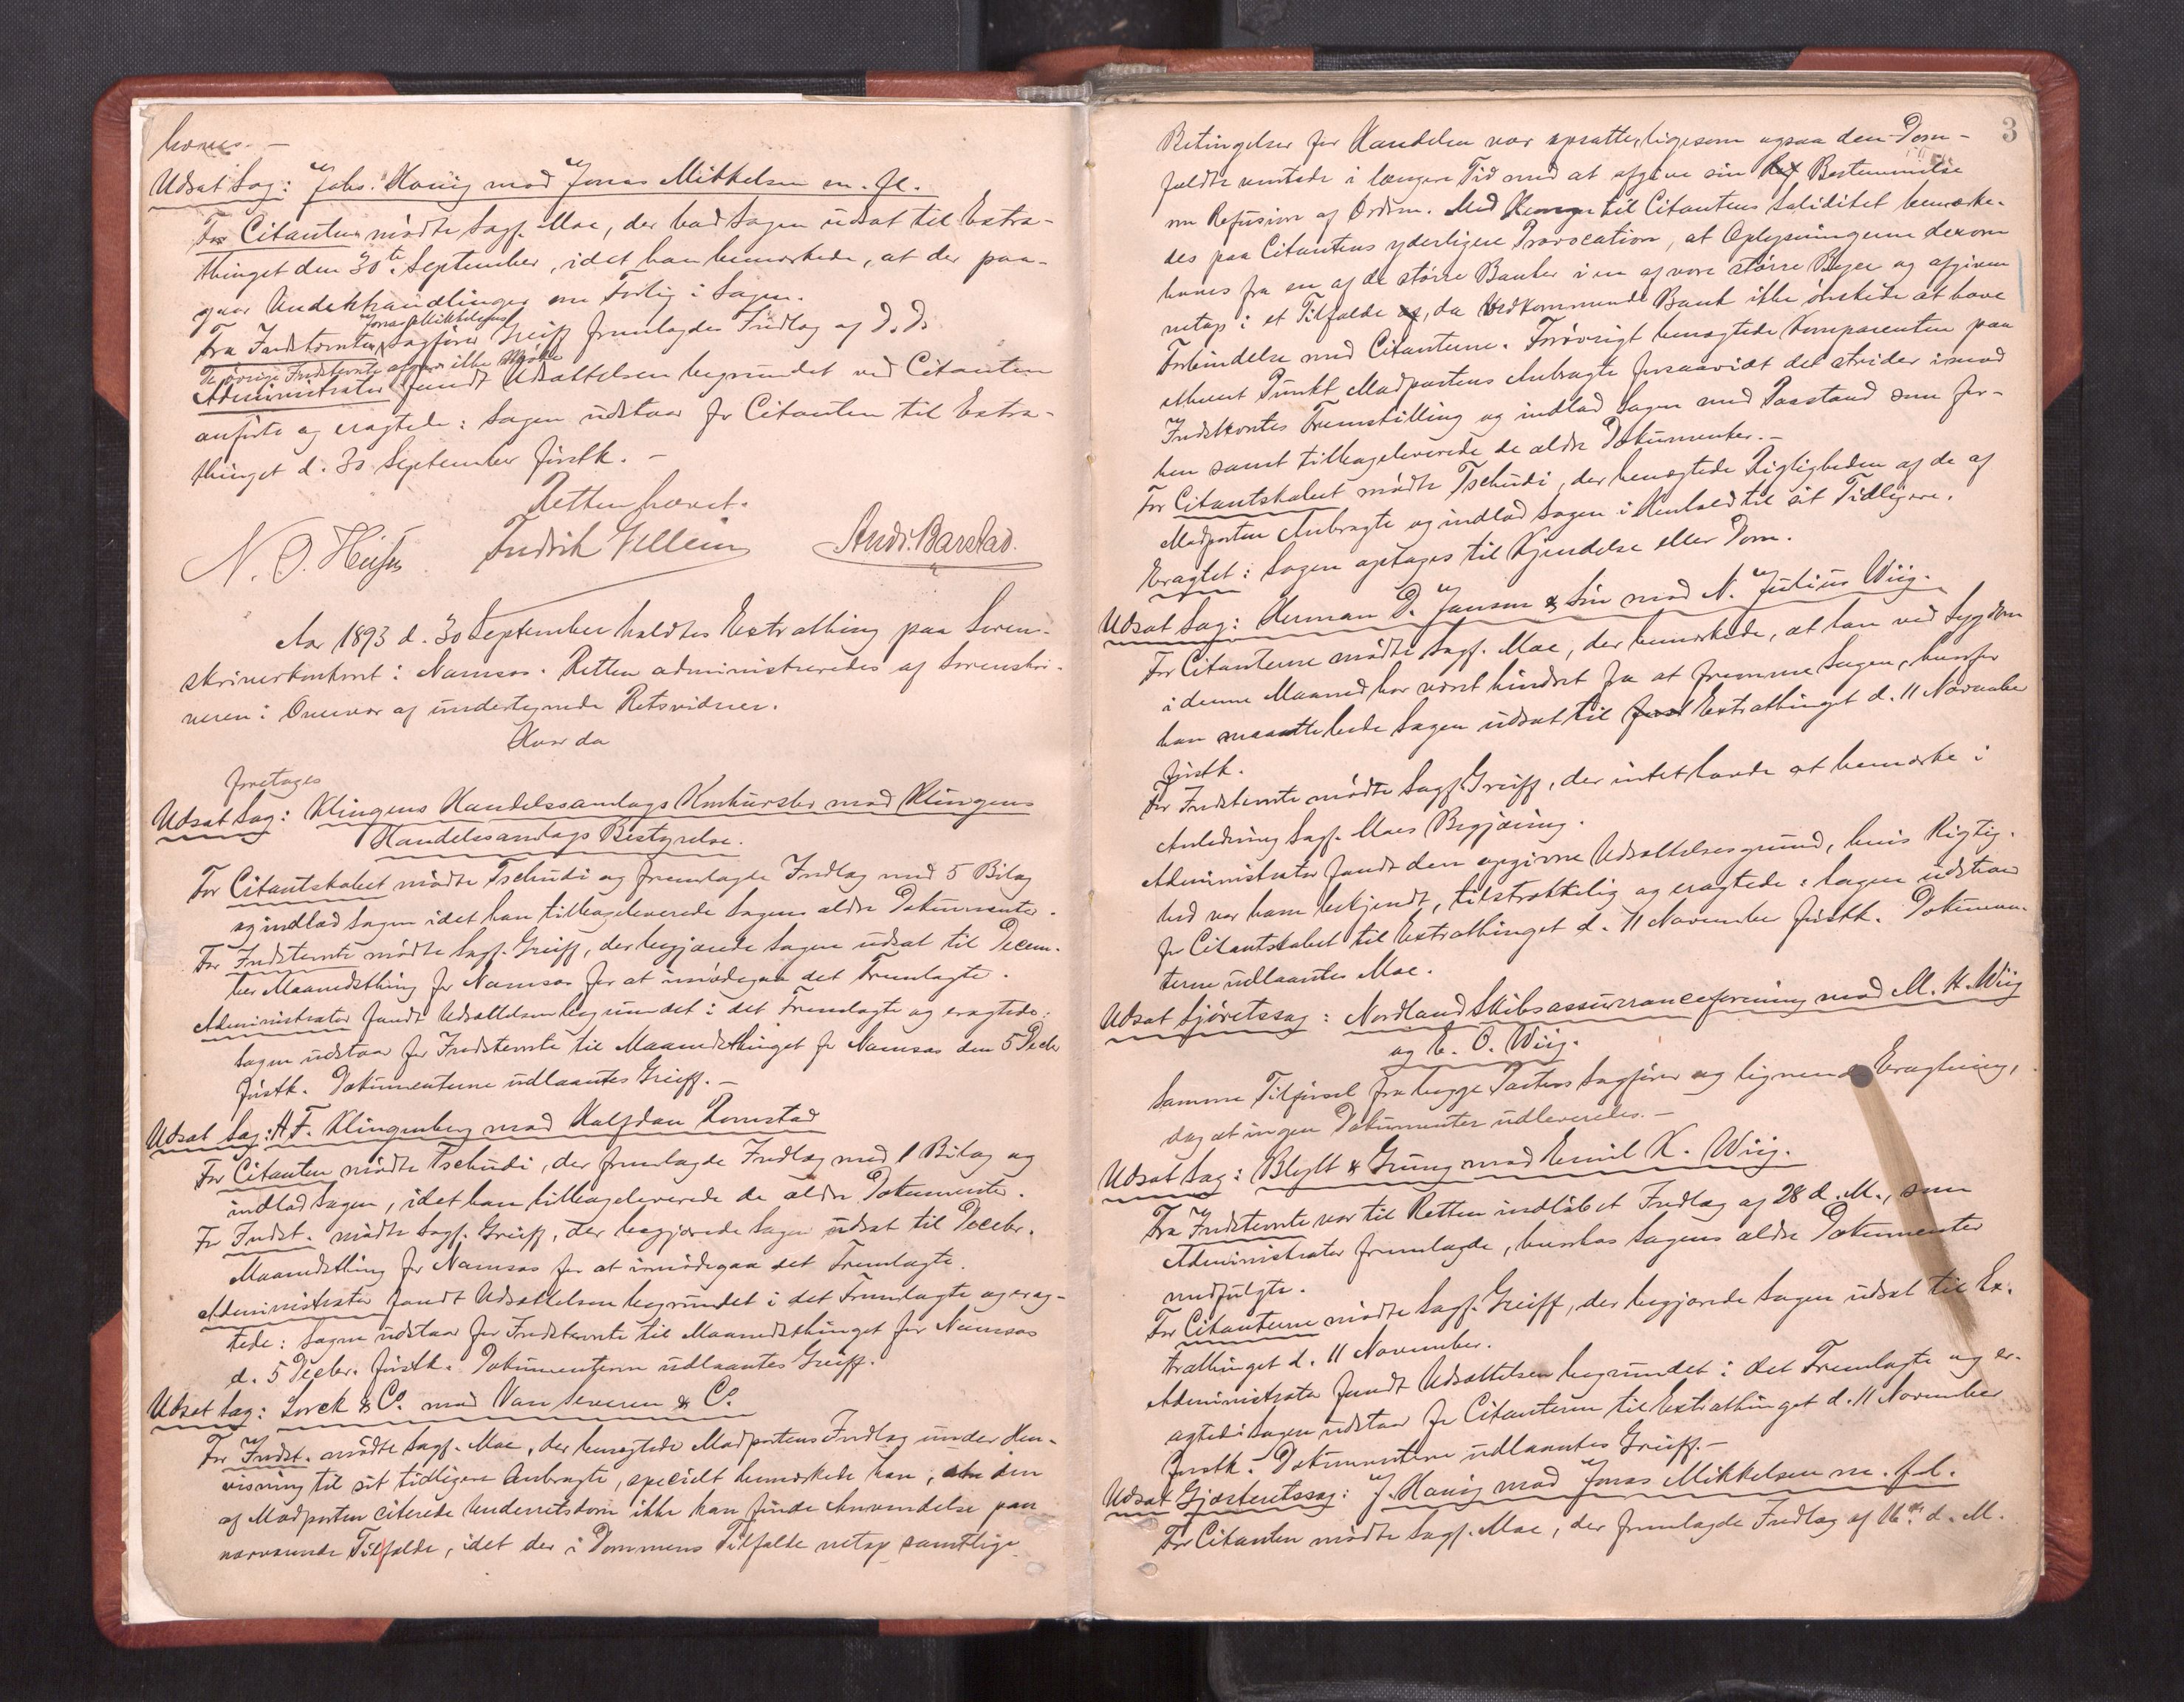 haves. —
Udsat Sag: Johs. Hanig mod Jonas Mikkelsen m. fl.
For Citanten mødte Sagf. Moe, der bad Sagen udsat til Extra-
thinget den 30te September, idet han bemærkede, at der paa-
gaar Underhandlinger om Forlig i Sagen.
Jonas Mikkelsens
Fra Indstevnte, Sagfører Greiff fremlagdes Indlæg af D. D.
De øvrige Indstevnte afgav ikke Møde
Administrator fandt Udsættelsen begrundet ved Citanten
anførte og eragtede: Sagen udstaar for Citanten til Extra-
thinget d. 30 September førstk. —
Retten hævet.
N. O. Fredrik Gellein Andr. Barstad.
Aar 1893 d. 30 September holdtes Extrathing paa Soren-
skriverkontoret i Namsos. Retten administreredes af Sorenskri-
veren i Overvær af undertegnede Retsvidner.
Hvor da
foretages
Udsat Sag: Klingens Handelssamlags Konkursbo mod Klingens
Handelssamlags Bestyrelse.
For Citantskabet mødte Tschudi og fremlagde Indlæg med 5 Bilag
og indlod Sagen idet han tilbageleverede Sagens ældre Dokumenter.
For Indstevnte mødte Sagf. Greiff, der begjærede Sagen udsat til Decem-
ber Maanedsthing for Namsos for at imødegaa det Fremlagte.
Administrator fandt Udsættelsen begrundet i det Fremlagte og eragtede:
Sagen udstaar for Indstevnte til Maanedsthinget for Namsos den 5 Decbr
førstk. Dokumenterne udlaantes Greiff. —
Udsat Sag: A F. Klingenberg mod Halfdan Romstad
For Citanten mødte Tschudi, der fremlagde Indlæg med 1 Bilag og
indlod Sagen, idet han tilbageleverede de ældre Dokumenter.
For Indst. mødte Sagf. Greiff, der begjærede Sagen udsat til Decebr.
Maanedsthing for Namsos for at imødegaa det Fremlagte.
Administrator fandt Udsættelsen begrundet i det Fremlagte og erag-
tede: Sagen udstaar for Indstevnte til Maanedsthinget for Namsos
d. 5 Decbr. førstk. Dokumenterne udlaantes Greiff.
Udsat Sag: Lorck & Co. mod Van Severen & Co.
For Indst. mødte Sagf. Moe, der benægtede Modpartens Indlæg under Hen-
visning til sit tidligere Anbragte, specielt bemærkede han, at den
af Modparten citerede Underretsdom ikke kan finde Anvendelse paa
nærværende Tilfælde, idet der i Dommens Tilfælde netop samtlige
3
Betingelser for Handelen var opsatte, ligesom ogsaa den Dom-
fældte ventede i længere Tid med at afgive sin Bestemmelse
om Refusion af Ordren. Med Hensyn til Citantens Soliditet bemærke-
des paa Citantens yderligere Provocation, at Oplysningerne derom
haves fra en af de større Banker i en af vore større Byer og afgiven
netop i et Tilfælde, da vedkommende Bank ikke ønskede at have
Forbindelse med Citanterne. Forøvrigt benægtede Komparenten paa
ethvert Punkt Modpartens Anbragte forsaavidt det strider imod
Indstevntes Fremstilling og indlod Sagen med Paastand som før-
hen samt tilbageleverede de ældre Dokumenter. —
For Citantskabet mødte Tschudi, der benægtede Rigtigheden af de af
Modparten Anbragte og indlod Sagen i Henhold til sit Tidligere.
Eragtet: Sagen optages til Kjendelse eller Dom.
Udsat Sag: Herman D. Janson & Søn mod N. Julius Wiig.
For Citanterne mødte Sagf. Moe, der bemærkede, at han ved Sygdom
i denne Maaned har været hindret fra at fremme Sagen, hvorfor
han maatte bede Sagen udsat til Extrathinget d. 11 November
førstk.
For Indstevnte mødte Sagf. Greiff, der intet havde at bemærke i
Anledning Sagf. Moes Begjæring.
Administrator fandt den opgivne Udsættelsesgrund, hvis Rigtig-
hed var ham bekjendt, tilstrækkelig og eragtede: Sagen udstaar
for Citantskabet til Extrathinget d. 11 November førstk. Dokumen-
terne udlaantes Moe.
Udsat Sjøretssag: Nordland Skibsassuranceforening mod M. H. Wiig
og E. O. Wiig.
Samme Tilførsel fra begge Parters Sagfører og lignende Eragtning,
dog at ingen Dokumenter udleveredes. —
Udsat Sag: Blytt & Grung mod Emil K. Wiig.
Fra Indstevnte var til Retten indløbet Indlæg af 28 d. M., som
Administrator fremlagde, hvorhos Sagens ældre Dokumenter
medfulgte.
For Citanterne mødte Sagf. Greiff, der begjærede Sagen udsat til Ex-
trathinget d. 11 November.
Administrator fandt Udsættelsen begrundet i det Fremlagte og er-
agtede: Sagen udstaar for Citanterne til Extrathinget d. 11 November
førstk. Dokumenterne udlaantes Greiff. —
Udsat Gjæsteretssag: J. Hanig mod Jonas Mikkelsen m. fl.
For Citanten mødte Sagf. Moe, der fremlagde Indlæg af d. M.